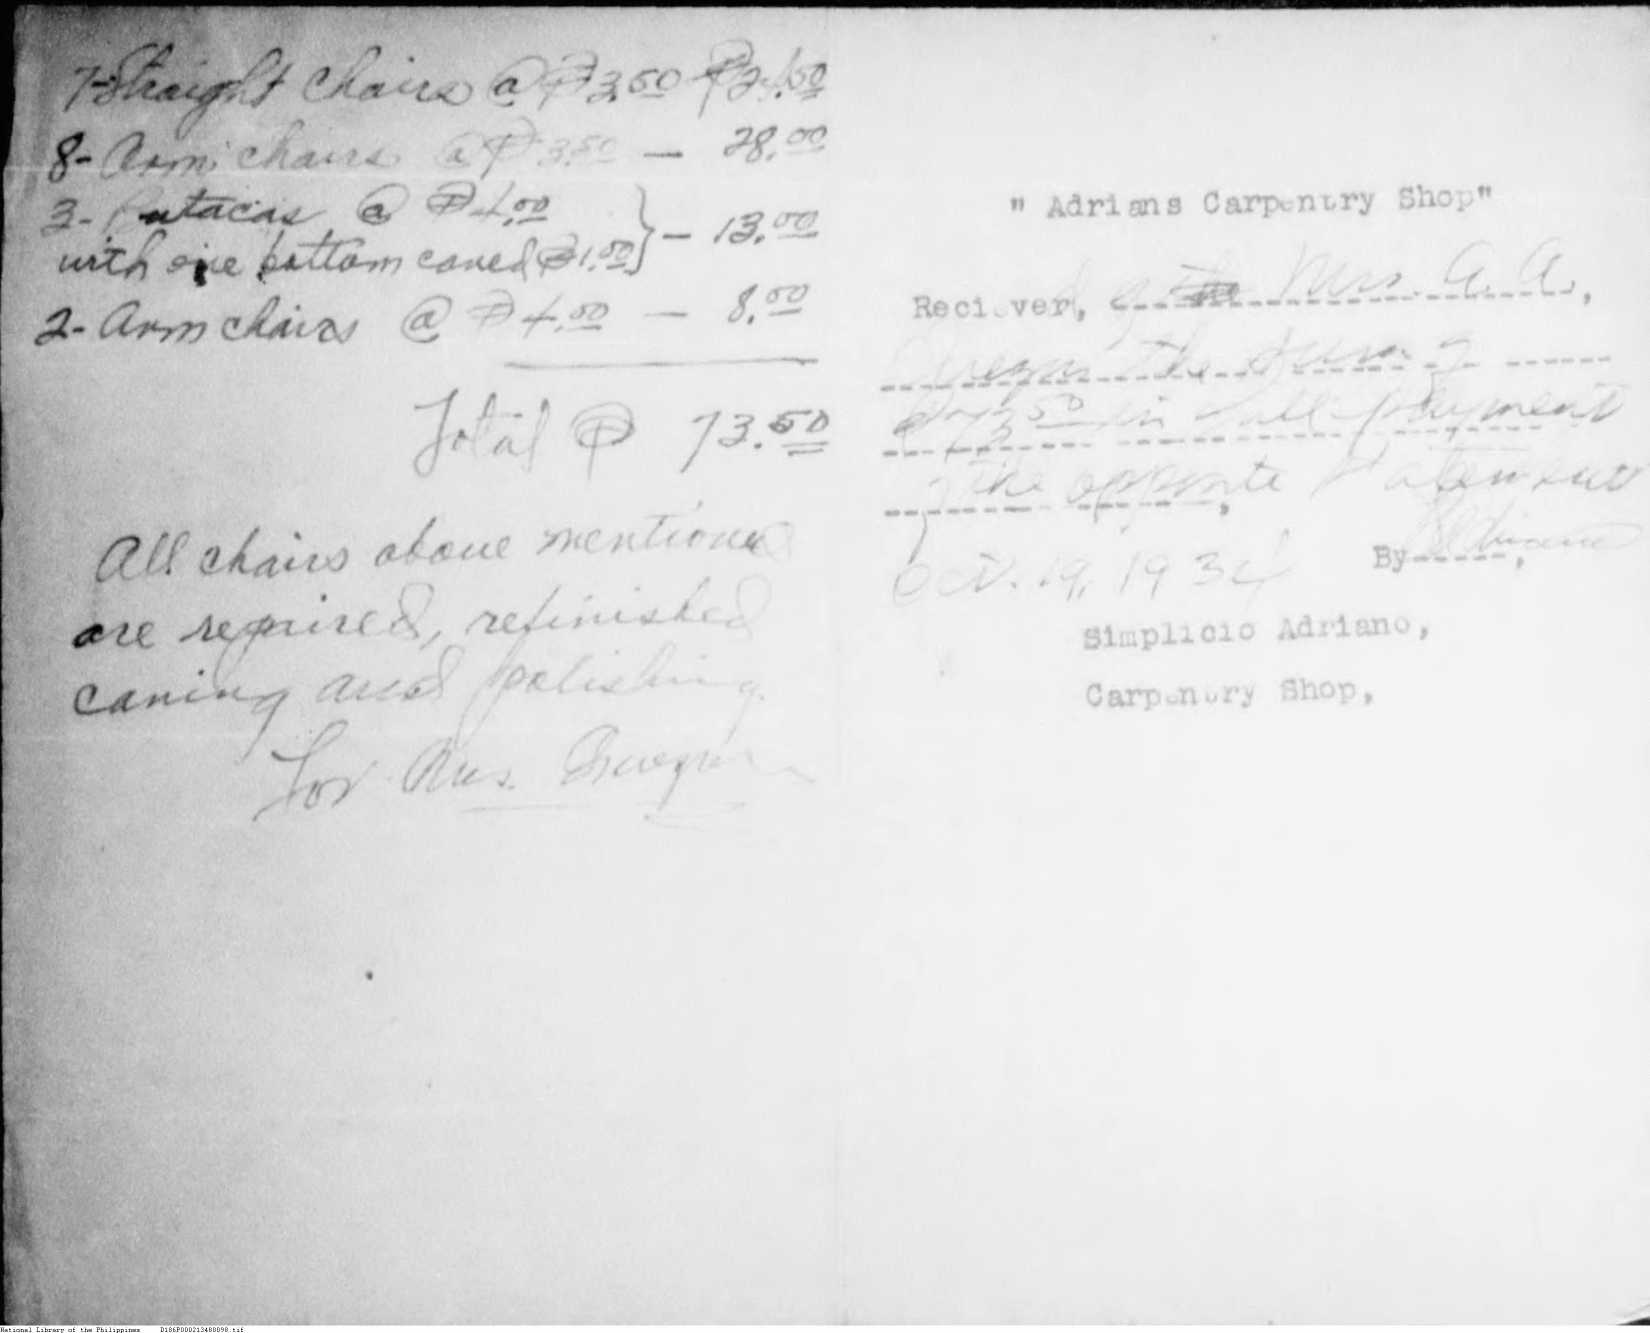 7-Straight chairs @ ₱3.50 ₱24.50
8- Arm chairs @ ₱3.50 — 28.00
3- Butacas @ ₱4.00
with one bottom caned ₱1.00 } — 13.00
2- Arm chairs @ ₱4.00 — 8.00
Total ₱ 73.50
All chairs above mentioned
are repaired, refinished
caning and polishing.
For Mrs.
" Adrians Carpentry Shop"
Reciever, Mrs. A. A.,
the sum of
₱73.50 in full payment
of the opposite statement
Oct. 19, 1934
By Adriano,
Simplicio Adriano,
Carpentry Shop,
National Library of the Philippines D186P000213400098.tif